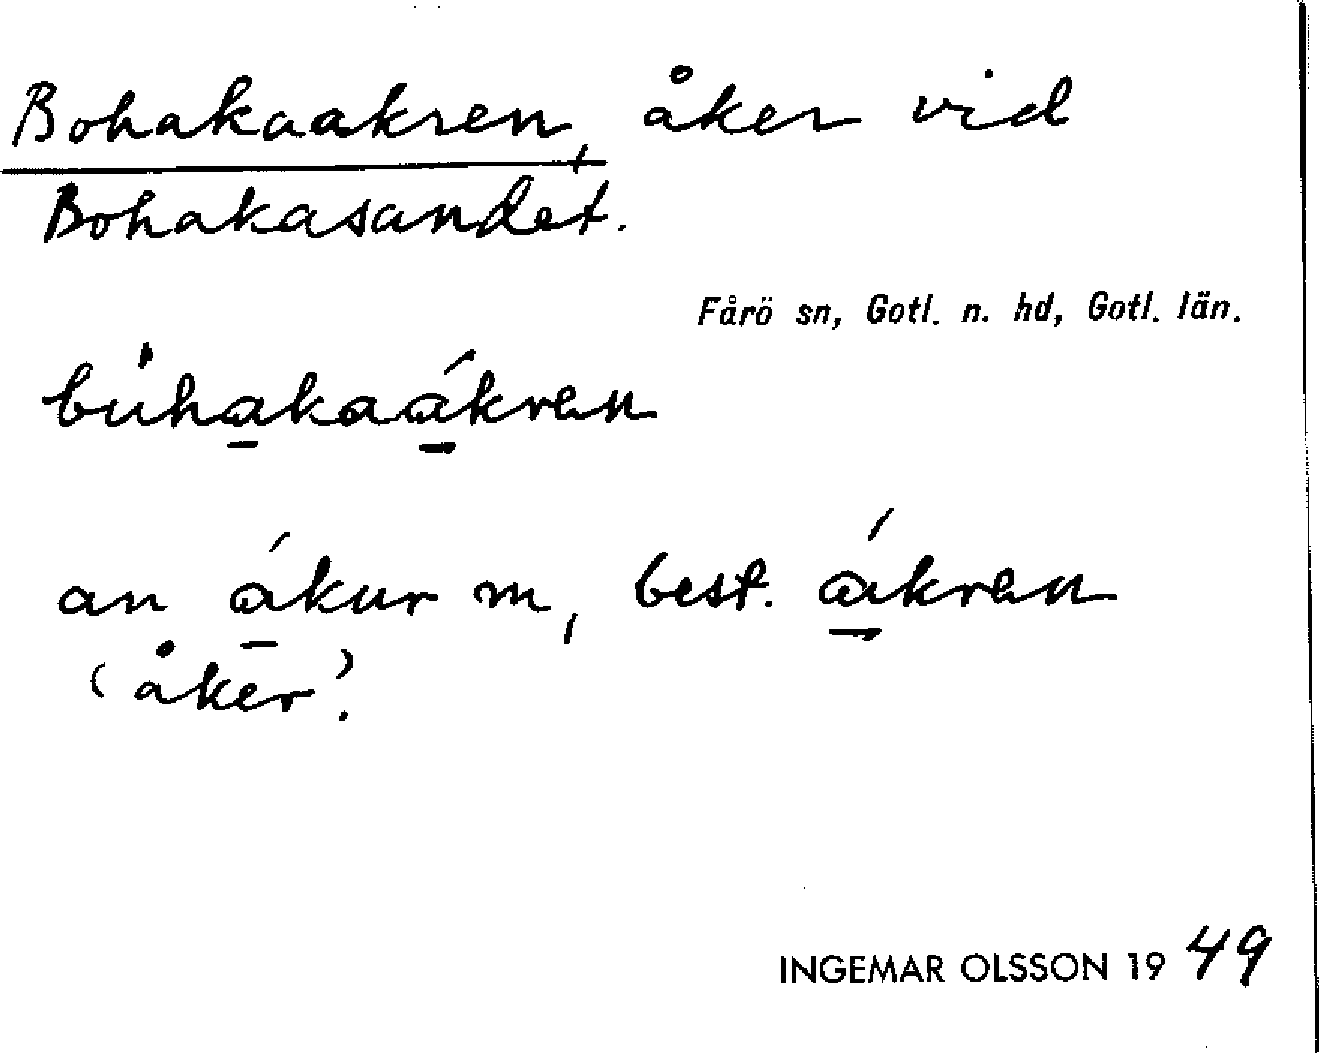 Bohakaakren, åker vid
Bohakasandet.
Fårö sn, Gotl. n. hd, Gotl. län.
búhakaákren
an ákur m, best. ákren
(åker).
INGEMAR OLSSON 1949